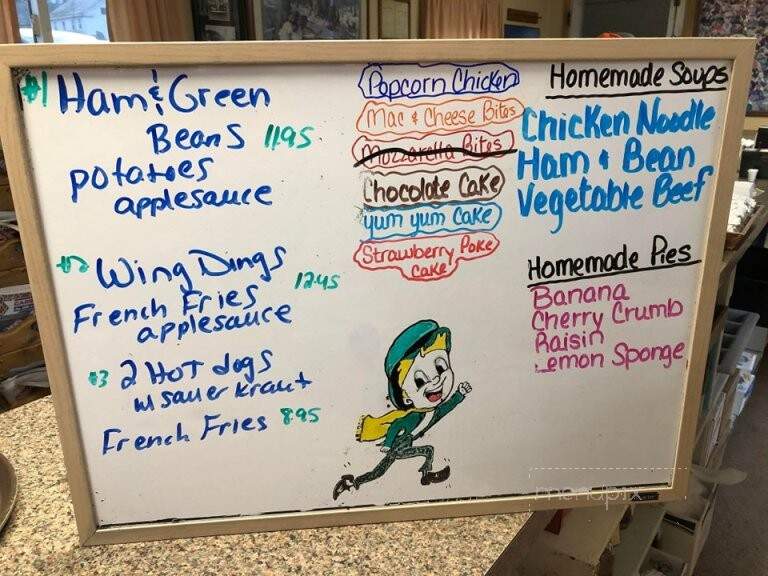 #1 Ham & Green
Beans 11.95
potatoes
applesauce
#2 Wing Dings
French Fries 12.45
applesauce
#3 2 Hot dogs
w/ sauer kraut
French Fries 8.95
Popcorn Chicken
Mac & Cheese Bites
Mozzarella Bites
Chocolate Cake
yum yum Cake
Strawberry Poke
Cake
Homemade Soups
Chicken Noodle
Ham & Bean
Vegetable Beef
Homemade Pies
Banana
Cherry Crumb
Raisin
Lemon Sponge
menupix